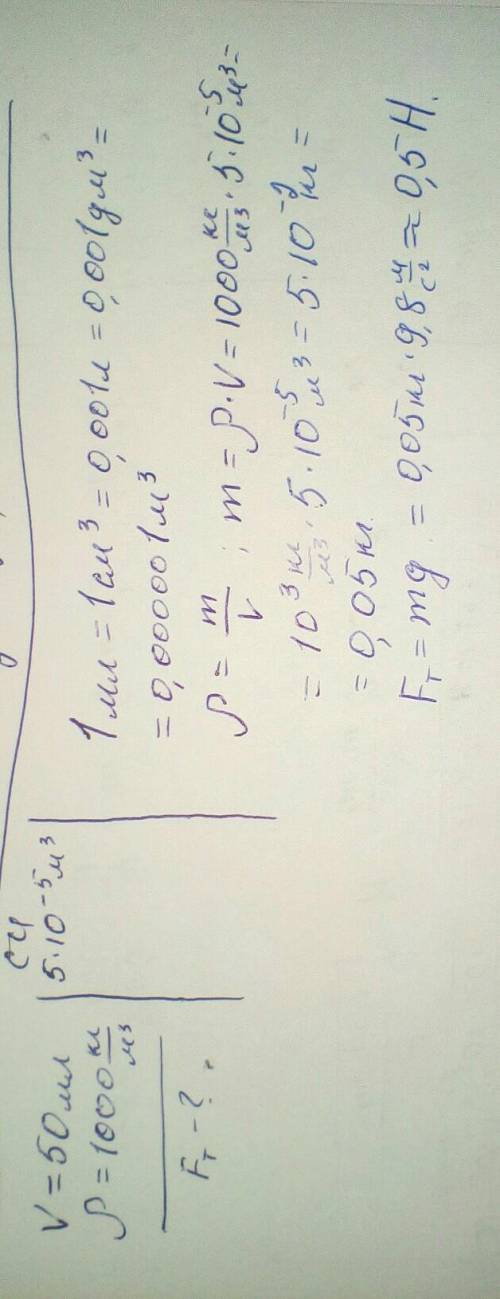 V = 50 мл
ρ = 1000 кг/м³
Fт - ?
СИ
5·10⁻⁵ м³
1 мл = 1 см³ = 0,001 л = 0,001 дм³ =
= 0,000001 м³
ρ = m/V ; m = ρ·V = 1000 кг/м³ · 5·10⁻⁵ м³ =
= 10³ кг/м³ · 5·10⁻⁵ м³ = 5·10⁻² кг =
= 0,05 кг
Fт = mg = 0,05 кг · 9,8 м/с² ≈ 0,5 Н.